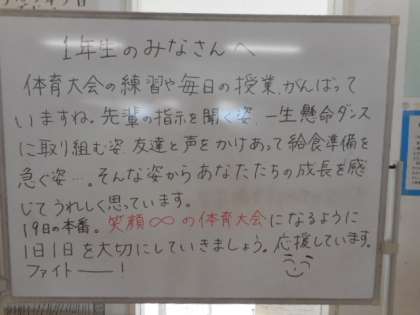 1年生のみなさんへ
体育大会の練習や毎日の授業、がんばって
いますね。先輩の指示を聞く姿…一生懸命ダンス
に取り組む姿 友達と声をかけあって給食準備を
急ぐ姿…。そんな姿からあなたたちの成長を感
じてうれしく思っています。
19日の本番。笑顔∞の体育大会になるように
1日1日を大切にしていきましょう。応援しています。
ファイトー!